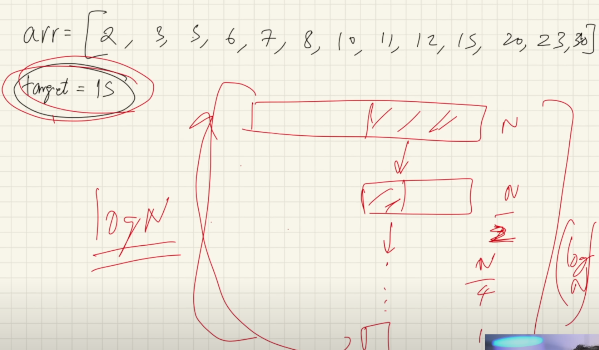 arr = [2, 3, 5, 6, 7, 8, 10, 11, 12, 15, 20, 23, 30]
target = 15
N
N/2
logN
N/4
log